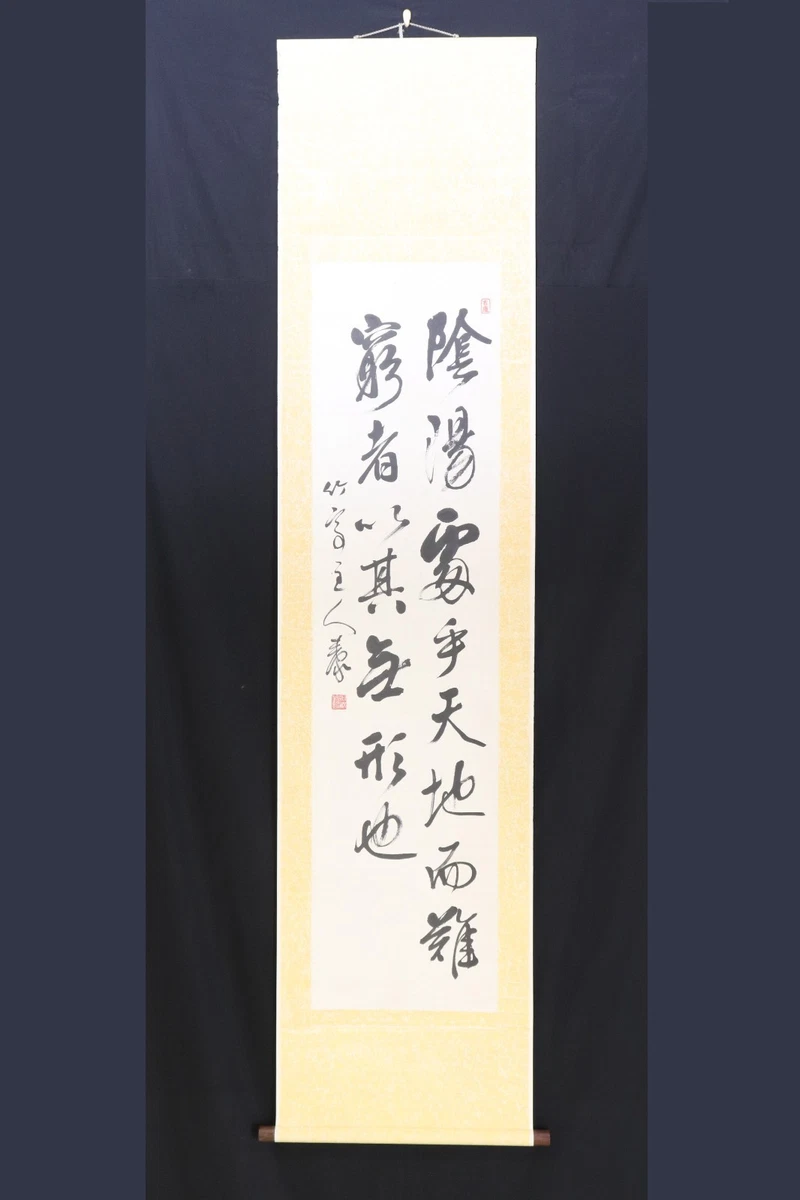 陰陽處乎天地而難
窮者以其無形也
竹亭主人